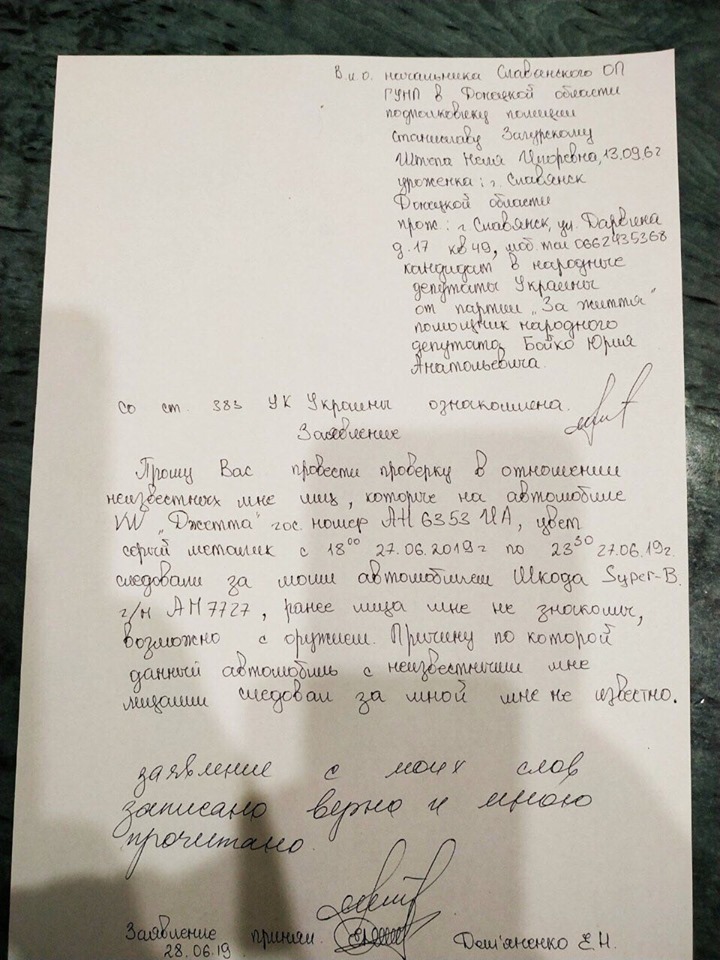 В.и.о. начальника Славянского ОП
ГУНП в Донецкой области
подполковнику полиции
Станиславу Загурскому
Штепа Неля Игоревна, 13.09.62
уроженка: г. Славянск
Донецкой области
прож: г. Славянск, ул. Дарвина
д. 17 кв 49, моб. тел 0662435368
кандидат в народные
депутаты Украины
от партии „За життя"
помощник народного
депутата Бойко Юрия
Анатольевича.
Со ст. 383 УК Украины ознакомлена.
Заявление
Прошу Вас провести проверку в отношении
неизвестных мне лиц, которые на автомобиле
VW „Джетта" гос. номер АН 6353 ИА, цвет
серый металик с 18⁰⁰ 27.06.2019г по 23³⁰ 27.06.19г.
следовали за моим автомобилем Шкода Super-B.
г/н АН 7727, ранее лица мне не знакомы,
возможно с оружием. Причину по которой
данный автомобиль с неизвестными мне
лицами следовал за мной мне не известно.
заявление с моих слов
записано верно и мною
прочитано.
Заявление принял Дем'яненко Е.Н.
28.06.19.